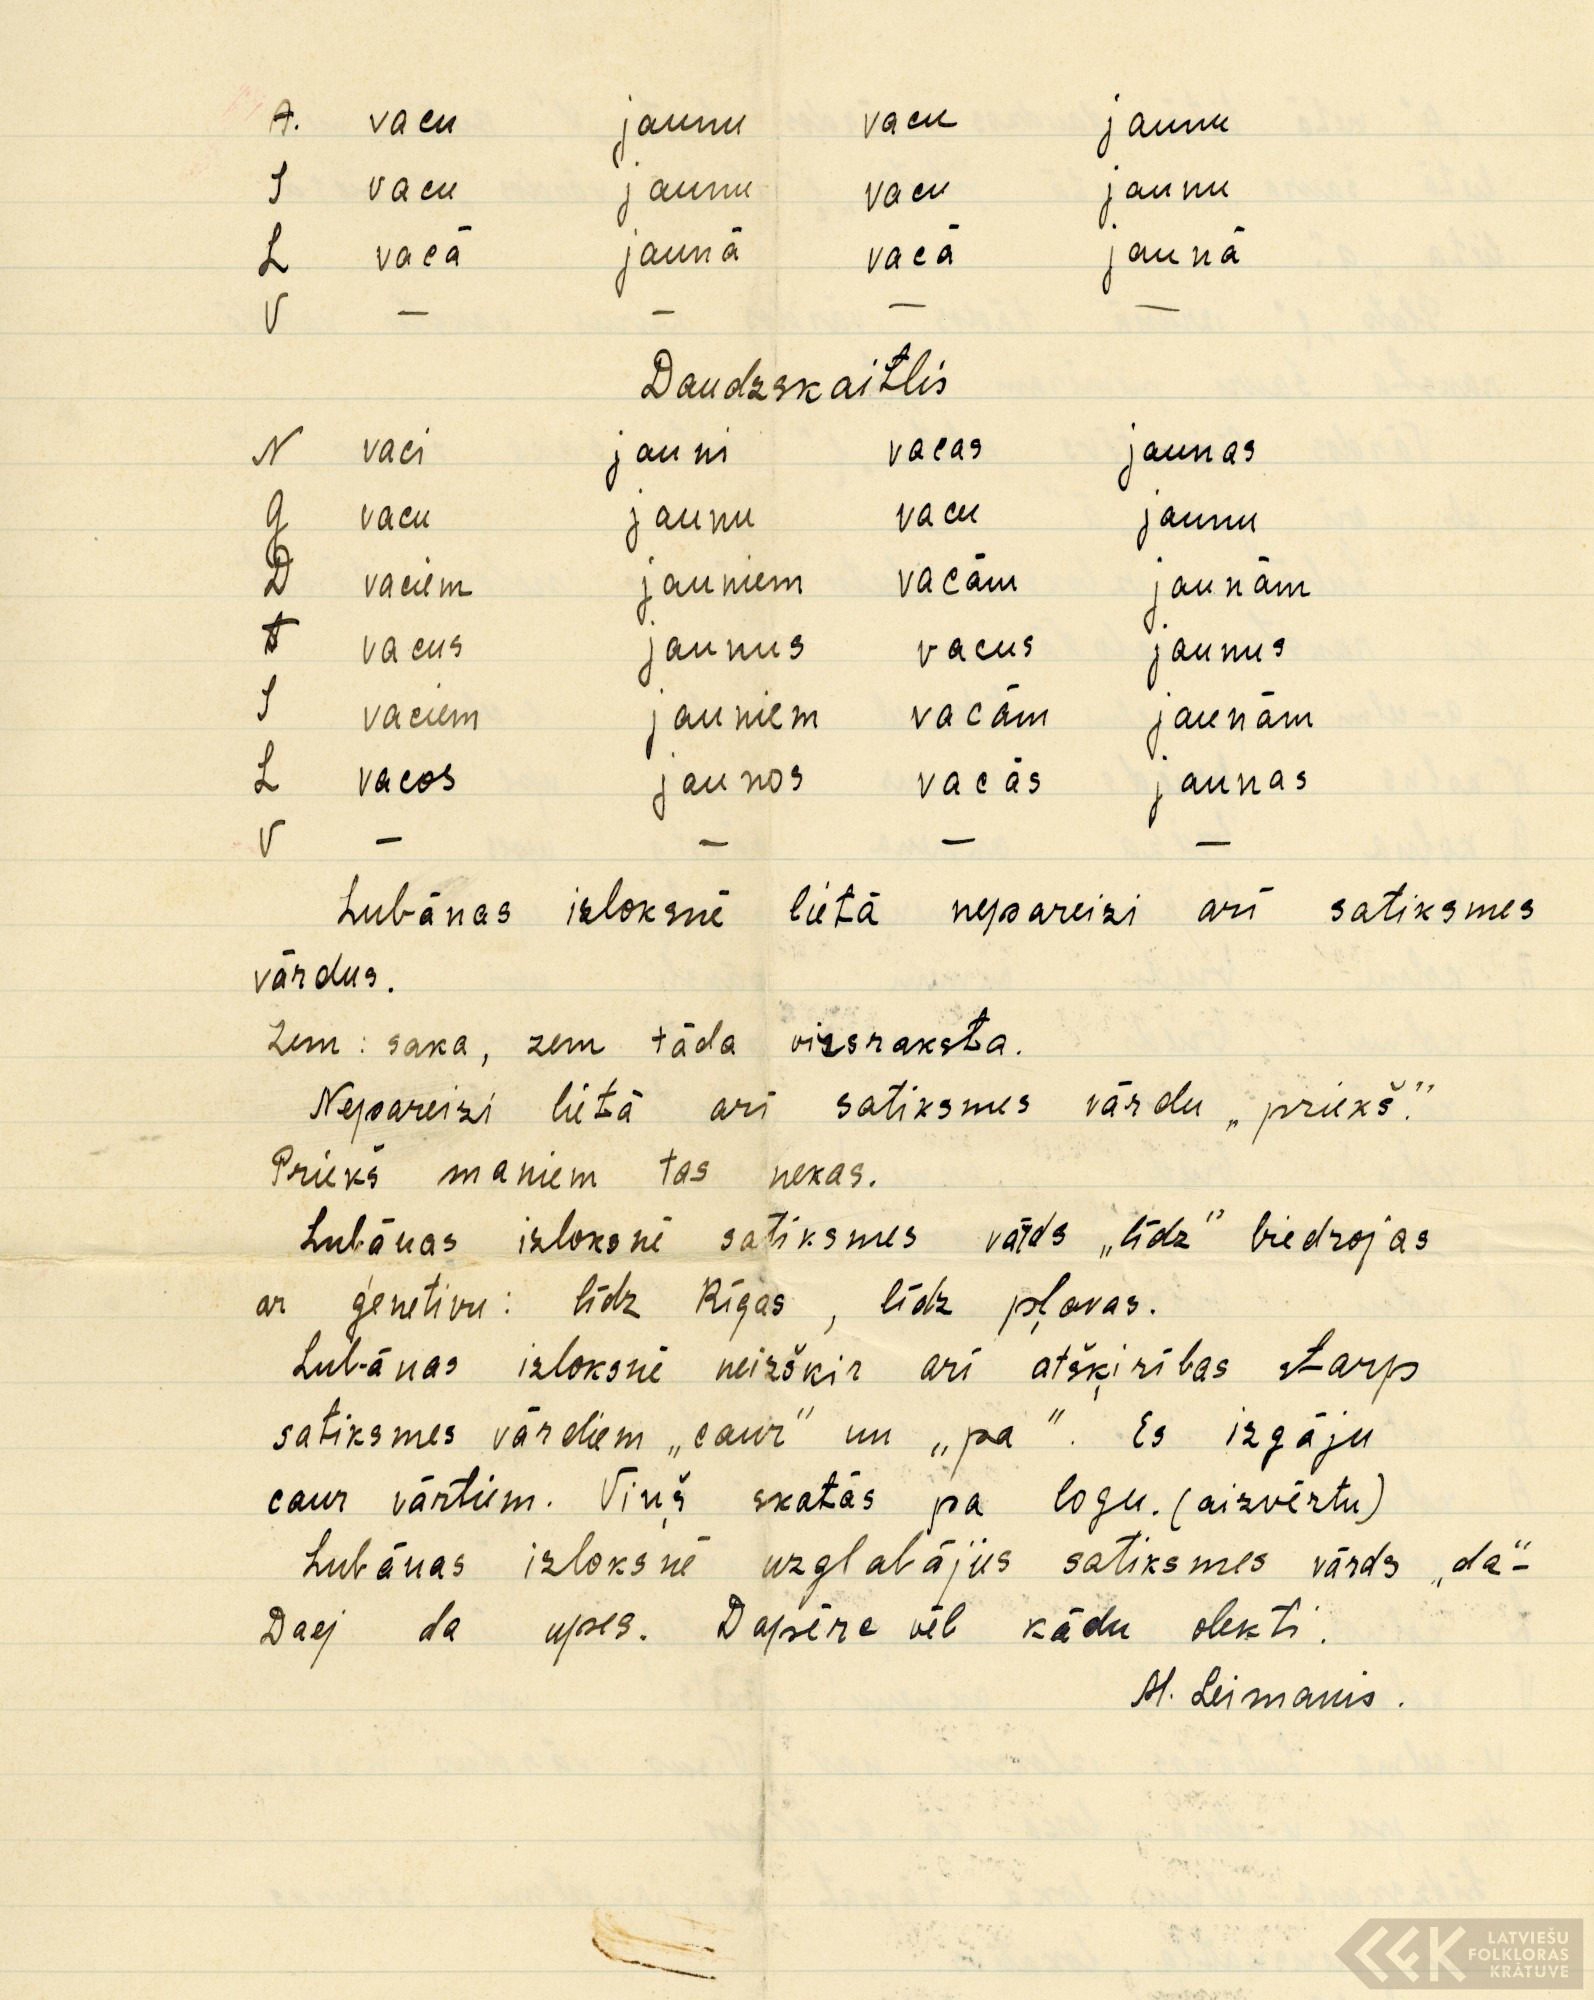 A. vacu jaunu vacu jaunu
I vacu jaunu vacu jaunu
L vacā jaunā vacā jaunā
V — — — —
Daudzskaitlis
N vaci jauni vacas jaunas
G vacu jaunu vacu jaunu
D vaciem jauniem vacām jaunām
A vacus jaunus vacus jaunus
I vaciem jauniem vacām jaunām
L vacos jaunos vacās jaunas
V — — — —
Lubānas izloksnē lietā nepareizi arī satiksmes
vārdus.
Zem: saka, zem tāda virsraksta.
Nepareizi lietā arī satiksmes vārdu „priekš”.
Priekš maniem tas nekas.
Lubānas izloksnē satiksmes vārds „līdz” biedrojas
ar ģenetivu: līdz Rīgas, līdz pļavas.
Lubānas izloksnē neizšķir arī atšķirības starp
satiksmes vārdiem „caur” un „pa”. Es izgāju
caur vārtiem. Viņš skatās pa logu. (aizvērtu)
Lubānas izloksnē uzglabājies satiksmes vārds „da”-
Daej da upes. Dapērc vēl kādu olekti.
Al. Leimanis.
LATVIEŠU
FOLKLORAS
KRĀTUVE